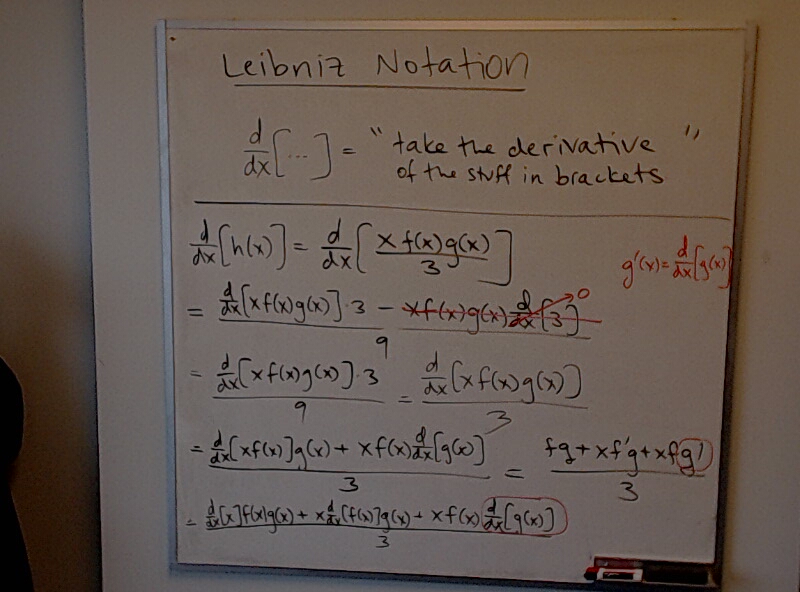 Leibniz Notation
d/dx[...] = "take the derivative of the stuff in brackets"
d/dx[h(x)] = d/dx[x f(x)g(x)/3]
g'(x) = d/dx[g(x)]
= (d/dx[xf(x)g(x)]·3 - xf(x)g(x)d/dx[3])/9 → 0
= (d/dx[xf(x)g(x)]·3)/9 = (d/dx[xf(x)g(x)])/3
= (d/dx[xf(x)]g(x) + xf(x)d/dx[g(x)])/3 = (fg+xf'g+xfg')/3
= (d/dx[x]f(x)g(x) + x d/dx[f(x)]g(x) + xf(x) d/dx[g(x)])/3